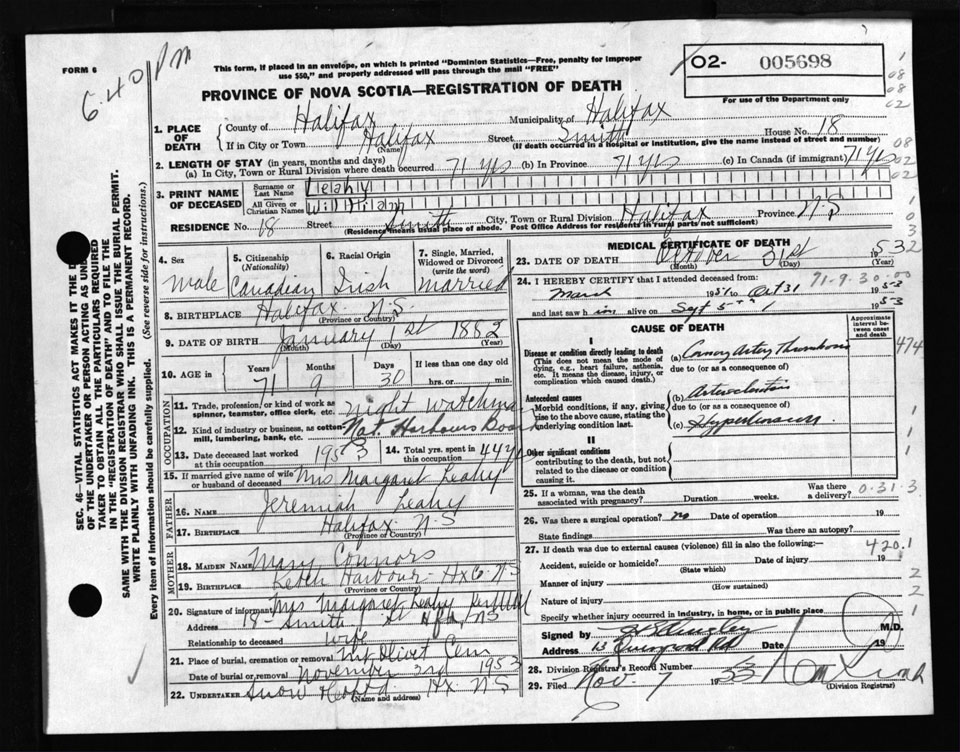 6.40 PM
FORM 6
This form, if placed in an envelope, on which is printed "Dominion Statistics—Free, penalty for improper
use $50," and properly addressed will pass through the mail "FREE"
O2- 005698
For use of the Department only
PROVINCE OF NOVA SCOTIA—REGISTRATION OF DEATH
1. PLACE OF DEATH
County of Halifax Municipality of Halifax
If in City or Town Halifax Street Smith House No. 18
(Name) (If death occurred in a hospital or institution, give the name instead of street and number)
2. LENGTH OF STAY (in years, months and days)
(a) In City, Town or Rural Division where death occurred 71 yrs (b) In Province 71 yrs (c) In Canada (if immigrant) 71 yrs
3. PRINT NAME OF DECEASED
Surname or Last Name Leahy
All Given or Christian Names William
RESIDENCE No. 18 Street Smith City, Town or Rural Division Halifax Province N.S
(Residence means usual place of abode. Post Office Address for residents in rural parts not sufficient)
4. Sex
Male
5. Citizenship (Nationality)
Canadian
6. Racial Origin
Irish
7. Single, Married, Widowed or Divorced (write the word)
Married
8. BIRTHPLACE Halifax N.S.
(Province or Country)
9. DATE OF BIRTH January 1st 1882
(Month) (Day) (Year)
10. AGE in Years Months Days If less than one day
71 9 30 hrs. or min.
OCCUPATION
11. Trade, profession or kind of work as spinner, teamster, office clerk, etc. night watchman
12. Kind of industry or business, as cotton-mill, lumbering, bank, etc. Nat. Harbours Board
13. Date deceased last worked at this occupation 1953
14. Total yrs. spent in this occupation 44 yrs
15. If married give name of wife or husband of deceased Mrs Margaret Leahy
FATHER
16. NAME Jeremiah Leahy
17. BIRTHPLACE Halifax N.S
(Province or Country)
MOTHER
18. MAIDEN NAME Mary Connors
19. BIRTHPLACE Ketch Harbour Hx Co. N.S
(Province or Country)
20. Signature of informant Mrs Margaret Leahy
Address 18 Smith St Hfx N.S
Relationship to deceased wife
21. Place of burial, cremation or removal Mt Olivet Cem
Date of burial or removal November 2nd 1953
22. UNDERTAKER Snow & Co Ltd. Hx. N.S
(Name and address)
MEDICAL CERTIFICATE OF DEATH
23. DATE OF DEATH October 31st 1953
(Month) (Day) (Year)
24. I HEREBY CERTIFY that I attended deceased from:
71-9-30-00
March 1951 to Oct 31 1953
and last saw him alive on Sept 5 1953
CAUSE OF DEATH
Approximate interval between onset and death
I
Disease or condition directly leading to death (a) Coronary Artery Thrombosis
(This does not mean the mode of dying, e.g., heart failure, asthenia, etc. It means the disease, injury, or complication which caused death.)
due to (or as a consequence of)
Antecedent causes (b) Arteriosclerosis
Morbid conditions, if any, giving rise to the above cause, stating the underlying condition last.
due to (or as a consequence of)
(c) Hypertension
II
Other significant conditions
contributing to the death, but not related to the disease or condition causing it.
25. If a woman, was the death associated with pregnancy? Duration weeks. Was there a delivery?
0.31.3
26. Was there a surgical operation? no Date of operation 19
State findings Was there an autopsy?
27. If death was due to external causes (violence) fill in also the following:—
420.1
Accident, suicide or homicide? Date of injury 19
(State which)
Manner of injury
(How sustained)
Nature of injury
Specify whether injury occurred in industry, in home, or in public place
Signed by M.D.
Address 15 Quinpool Rd Date 19
28. Division Registrar's Record Number
29. Filed Nov. 7 1953
(Division Registrar)
SEC. 46—VITAL STATISTICS ACT MAKES IT THE D
OF THE UNDERTAKER OR PERSON ACTING AS UN
TAKER TO OBTAIN ALL THE PARTICULARS REQUIRED
IN THE "REGISTRATION OF DEATH" AND TO FILE THE
SAME WITH THE DIVISION REGISTRAR WHO SHALL ISSUE THE BURIAL PERMIT.
WRITE PLAINLY WITH UNFADING INK. THIS IS A PERMANENT RECORD.
Every item of information should be carefully supplied. (See reverse side for instructions.)